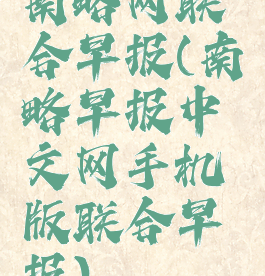 南略网联
合早报(南
略早报中
文网手机
版联合早
报)